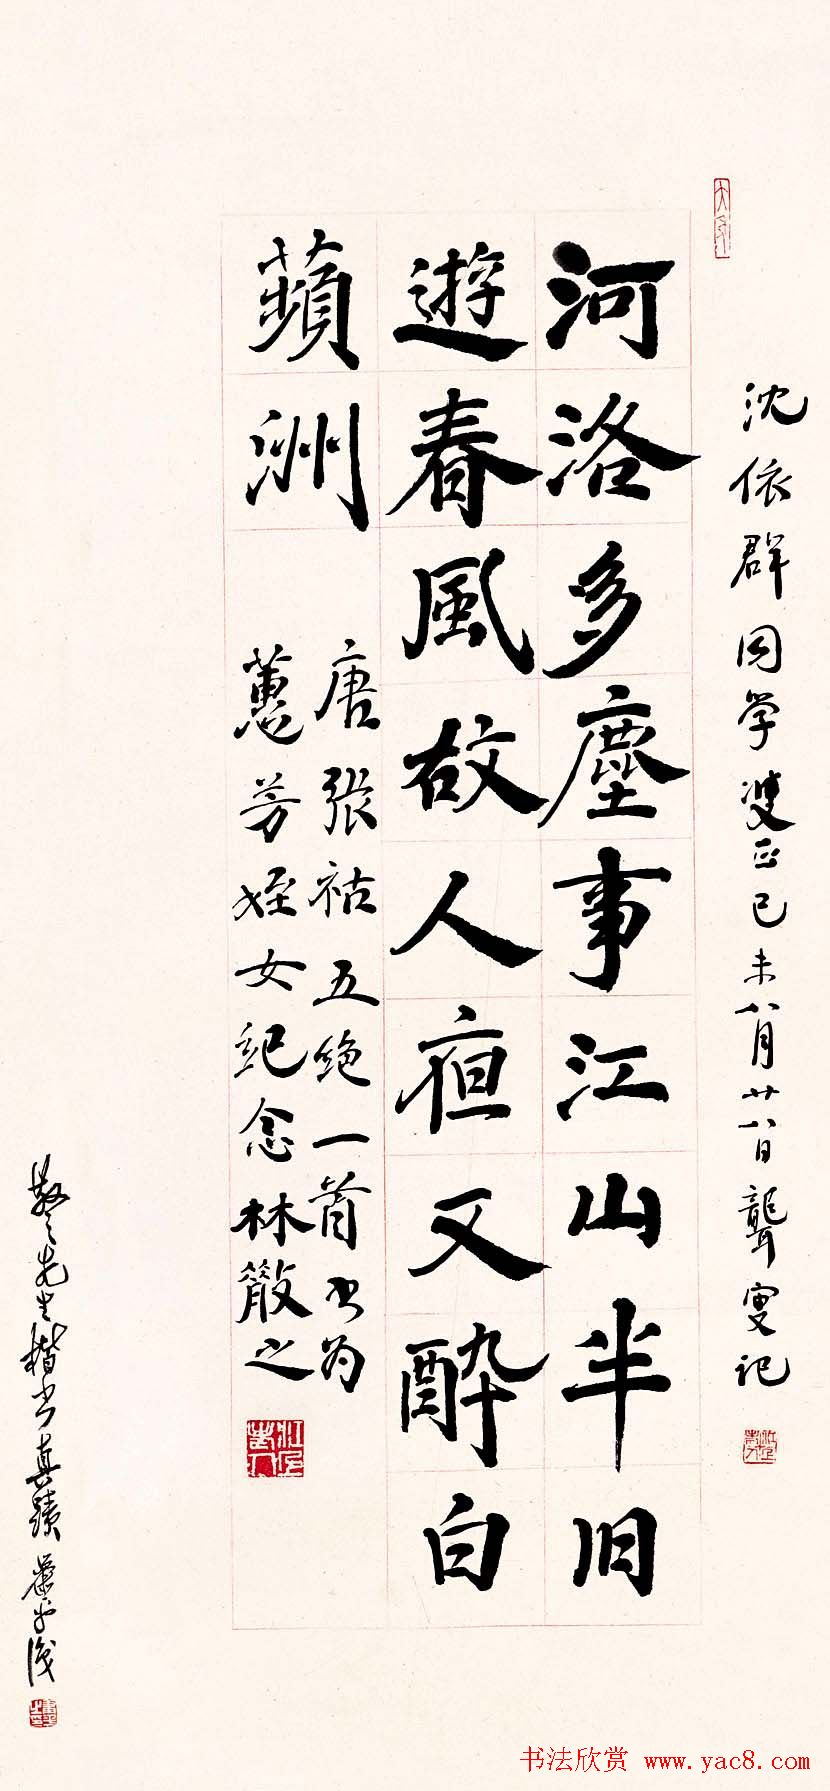 沈依群同学双正己未八月廿八日聋叟记
河洛多塵事江山半旧
遊春風故人夜又醉白
蘋洲
唐张祜五绝一首书为
蕙芳姪女纪念林散之
散之先生楷书真蹟
书法欣赏 www.yac8.com